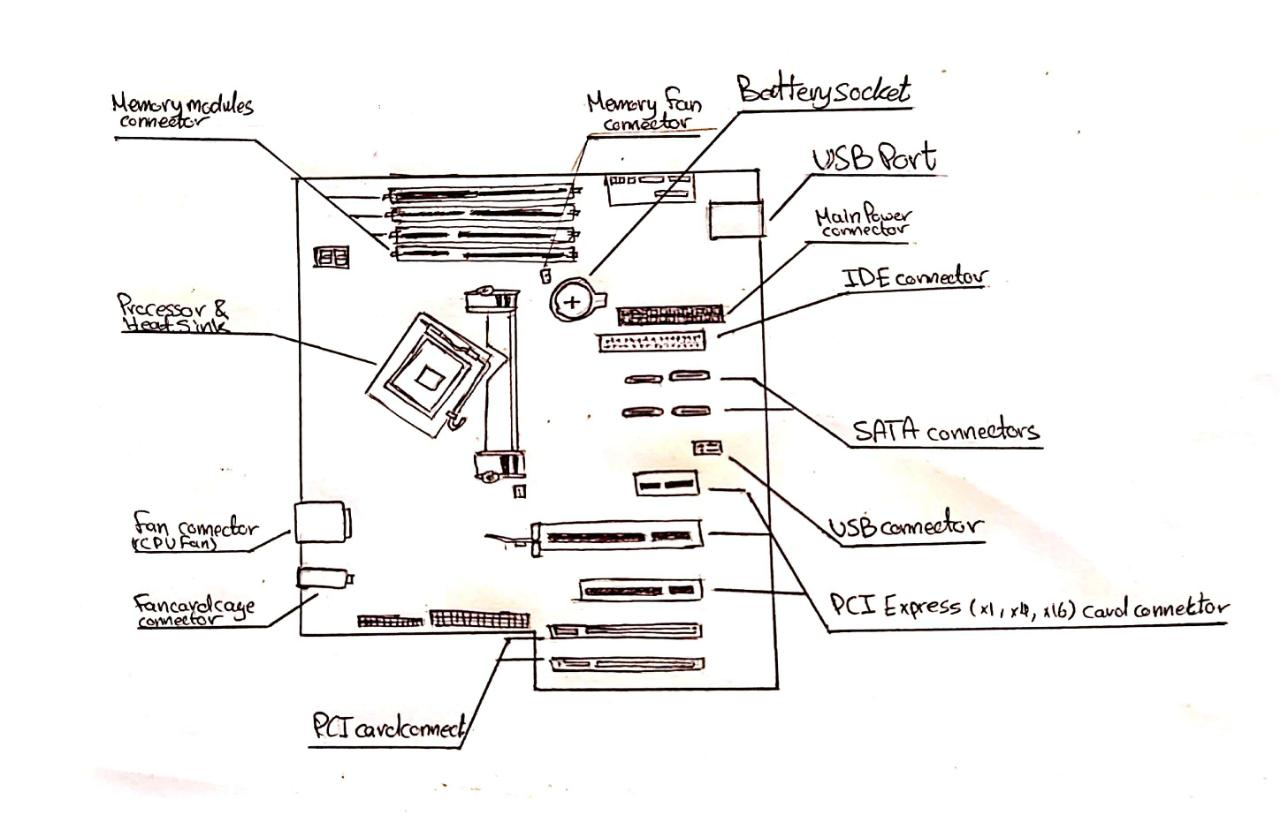 Memory modules
connector
Memory fan
connector
Battery socket
USB Port
Main Power
connector
IDE connector
Processor &
Heat Sink
SATA connectors
Fan connector
(CPU Fan)
USB connector
Fan card cage
connector
PCI Express (x1, x4, x16) card connector
PCI card connect